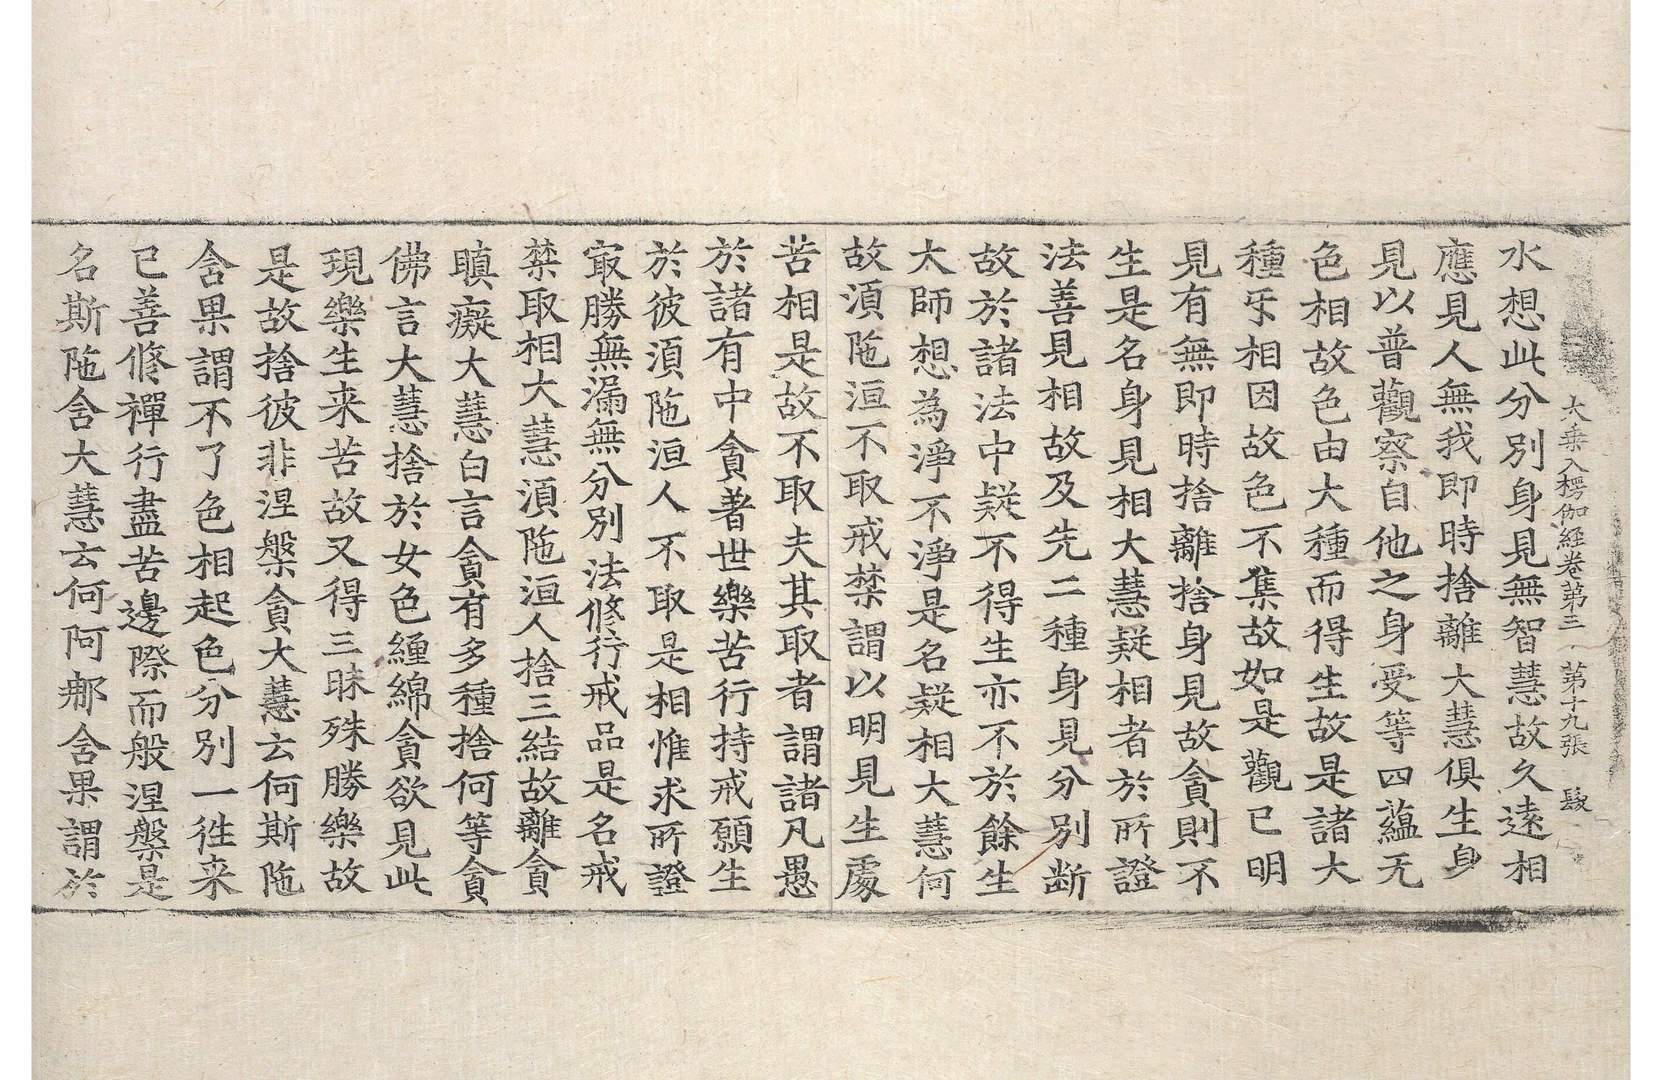 大乗入楞伽經卷第三 第十九張 髮
水想此分別身見無智慧故久遠相
應見人無我即時捨離大慧俱生身
見以普觀察自他之身受等四蘊无
色相故色由大種而得生故是諸大
種牙相因故色不集故如是觀已明
見有無即時捨離捨身見故貪則不
生是名身見相大慧疑相者於所證
法善見相故及先二種身見分別断
故於諸法中疑不得生亦不於餘生
大師想為淨不淨是名疑相大慧何
故須陁洹不取戒禁謂以明見生處
苦相是故不取夫其取者謂諸凡愚
於諸有中貪著世樂苦行持戒願生
於彼須陁洹人不取是相惟求所證
冣勝無漏無分別法修行戒品是名戒
禁取相大慧須陁洹人捨三結故離貪
瞋癡大慧白言貪有多種捨何等貪
佛言大慧捨於女色纏綿貪欲見此
現樂生来苦故又得三昧殊勝樂故
是故捨彼非涅槃貪大慧云何斯陁
含果謂不了色相起色分別一徃来
已善修禪行盡苦邊際而般涅槃是
名斯陁含大慧云何阿那含果謂於